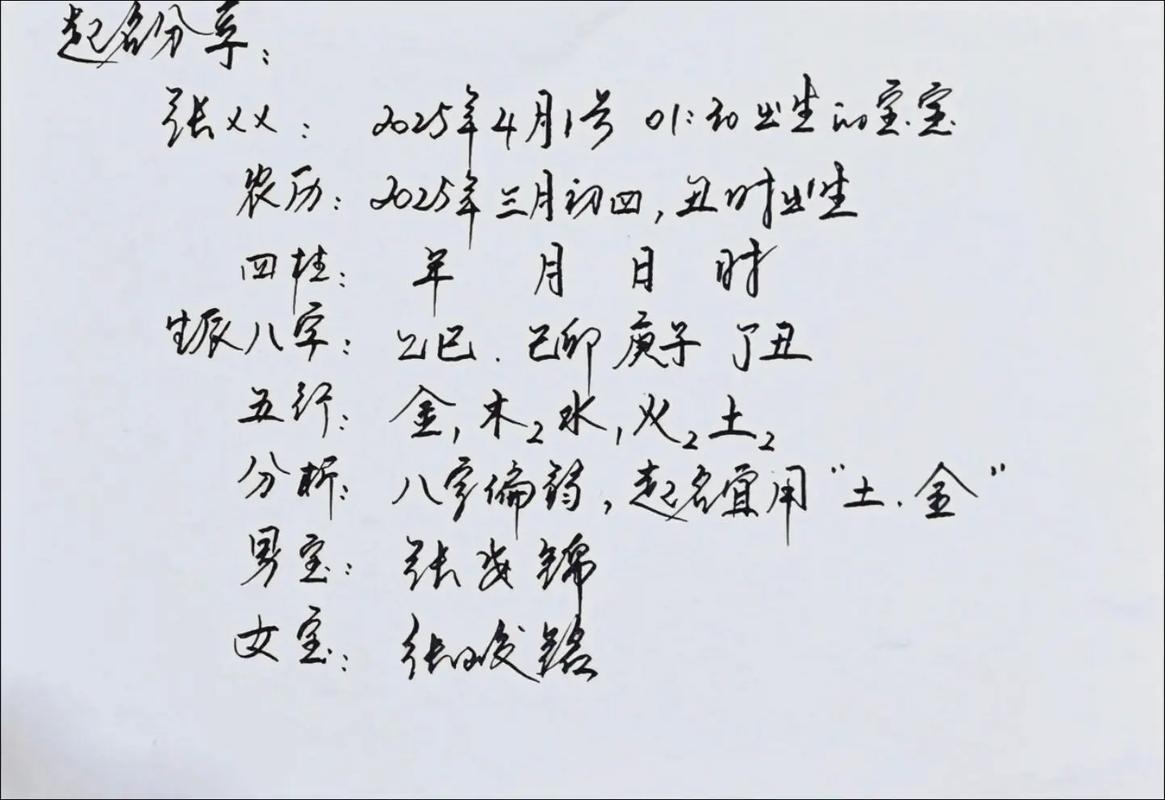 起名分享：
张xx： 2025年4月1号 01:30出生的宝宝
农历：2025年三月初四，丑时出生
四柱： 年 月 日 时
生辰八字： 乙巳．己卯 庚子 丁丑
五行： 金1木2水1火2土2
分析： 八字偏弱，起名宜用"土．金"
男宝： 张 锦
女宝： 张 铭